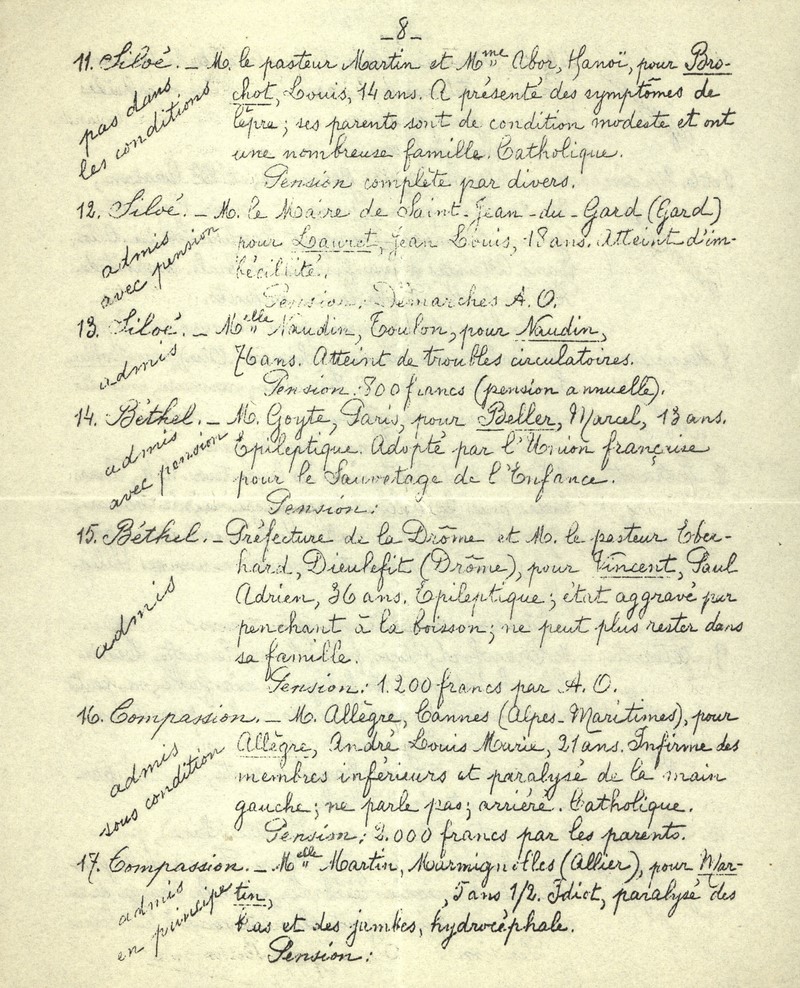 _8_
11. Siloé. _ M. le pasteur Martin et Mme Abor, Hanoï, pour Bro-
pas dans
les conditions
chot, Louis, 14 ans. A présenté des symptômes de
lèpre; ses parents sont de condition modeste et ont
une nombreuse famille. Catholique.
Pension complète par divers.
12. Siloé. _ M. le Maire de Saint-Jean-du-Gard (Gard)
admis
avec pension
pour Lauret, Jean Louis, 18 ans. Atteint d'im-
bécillité.
Pension: Démarches A. O.
13. Siloé. _ Melle Naudin, Toulon, pour Naudin,
admis
76 ans. Atteint de troubles circulatoires.
Pension: 800 francs (pension annuelle).
14. Béthel. _ M. Goyte, Paris, pour Beller, Marcel, 13 ans.
admis
avec pension
Epileptique. Adopté par l'Union française
pour le Sauvetage de l'Enfance.
Pension:
15. Béthel. _ Préfecture de la Drôme et M. le pasteur Eber-
admis
hard, Dieulefit (Drôme), pour Vincent, Paul
Adrien, 36 ans. Epileptique; état aggravé par
penchant à la boisson; ne peut plus rester dans
sa famille.
Pension: 1.200 francs par A. O.
16. Compassion. _ M. Allègre, Cannes (Alpes-Maritimes), pour
admis
sous condition
Allègre, André Louis Marie, 21 ans. Infirme des
membres inférieurs et paralysé de la main
gauche; ne parle pas; arriéré. Catholique.
Pension: 3.000 francs par les parents.
17. Compassion. _ Melle Martin, Marmignolles (Allier), pour Mar-
admis
en principe
tin, , 5 ans 1/2. Idiot, paralysé des
bas et des jambes, hydrocéphale.
Pension: